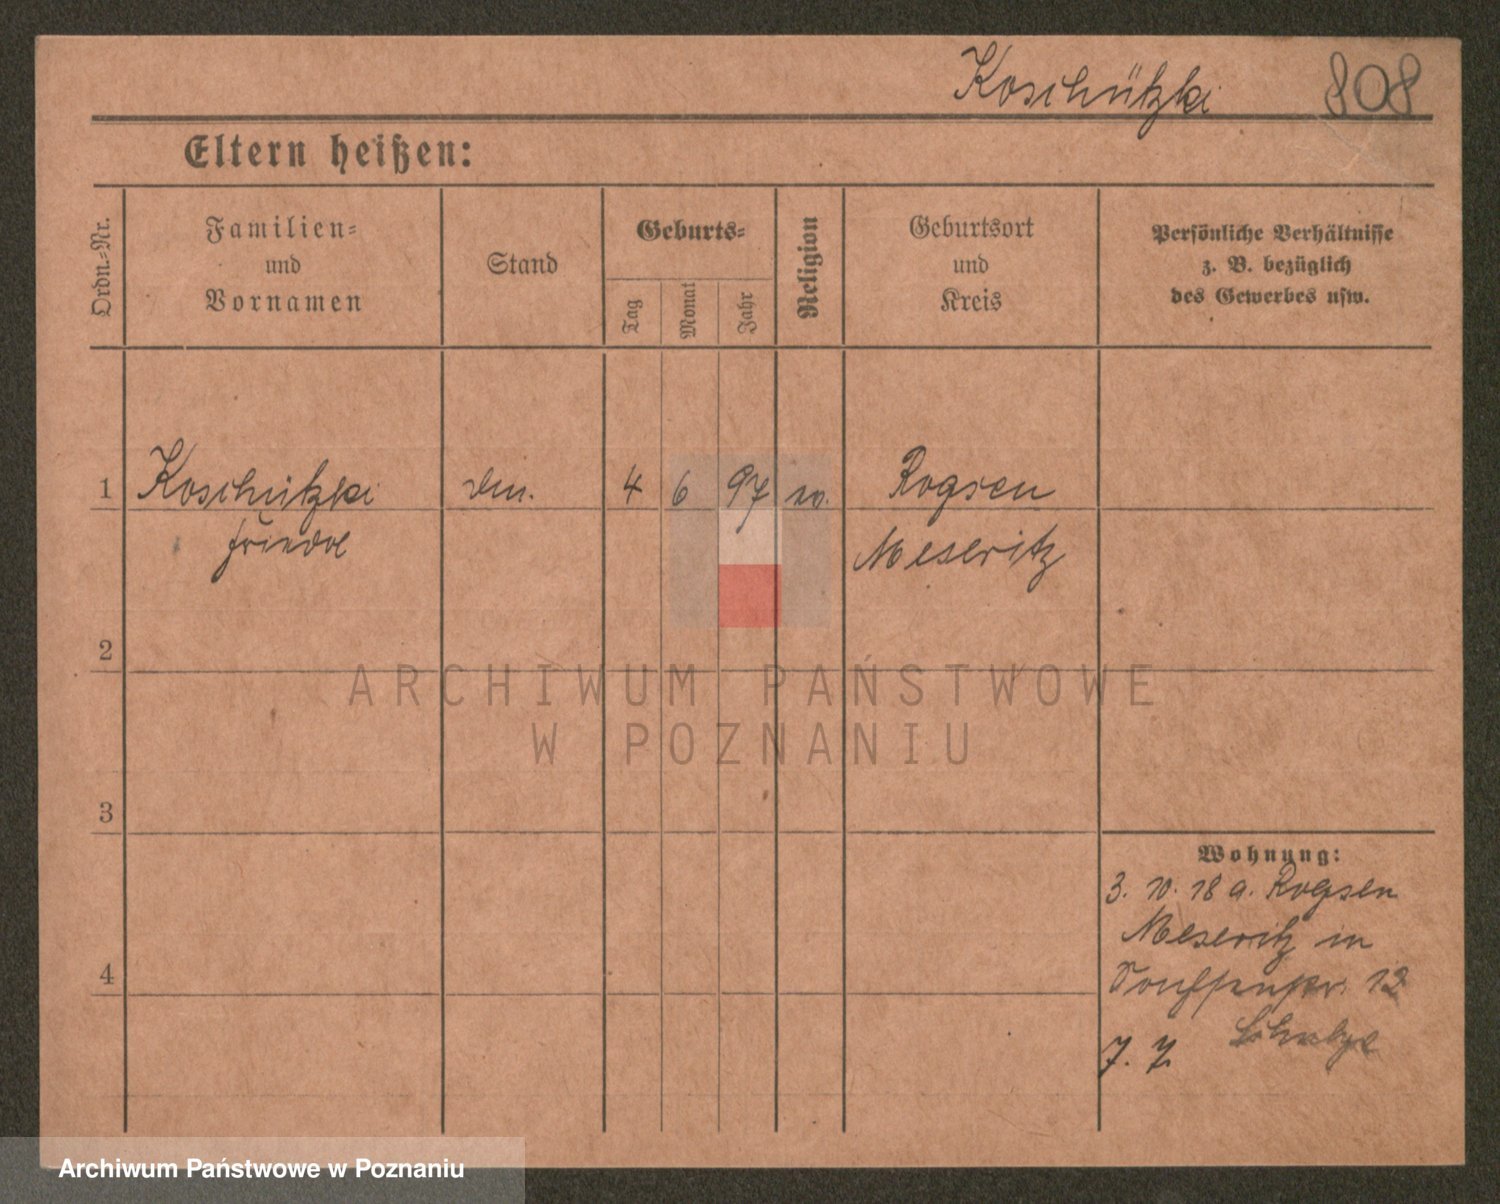 Koschützki 808
Eltern heißen:
Ordn.-Nr.
Familien-
und
Vornamen
Stand
Geburts-
Tag
Monat
Jahr
Religion
Geburtsort
und
Kreis
Persönliche Verhältnisse
z. B. bezüglich
des Gewerbes usw.
1 Koschützki 4 6 97 Rogsen
Friede Meseritz
2
ARCHIWUM PAŃSTWOWE
W POZNANIU
3
Wohnung:
3. 10. 18 a. Rogsen
Meseritz in
12
4
7. 7.
Archiwum Państwowe w Poznaniu